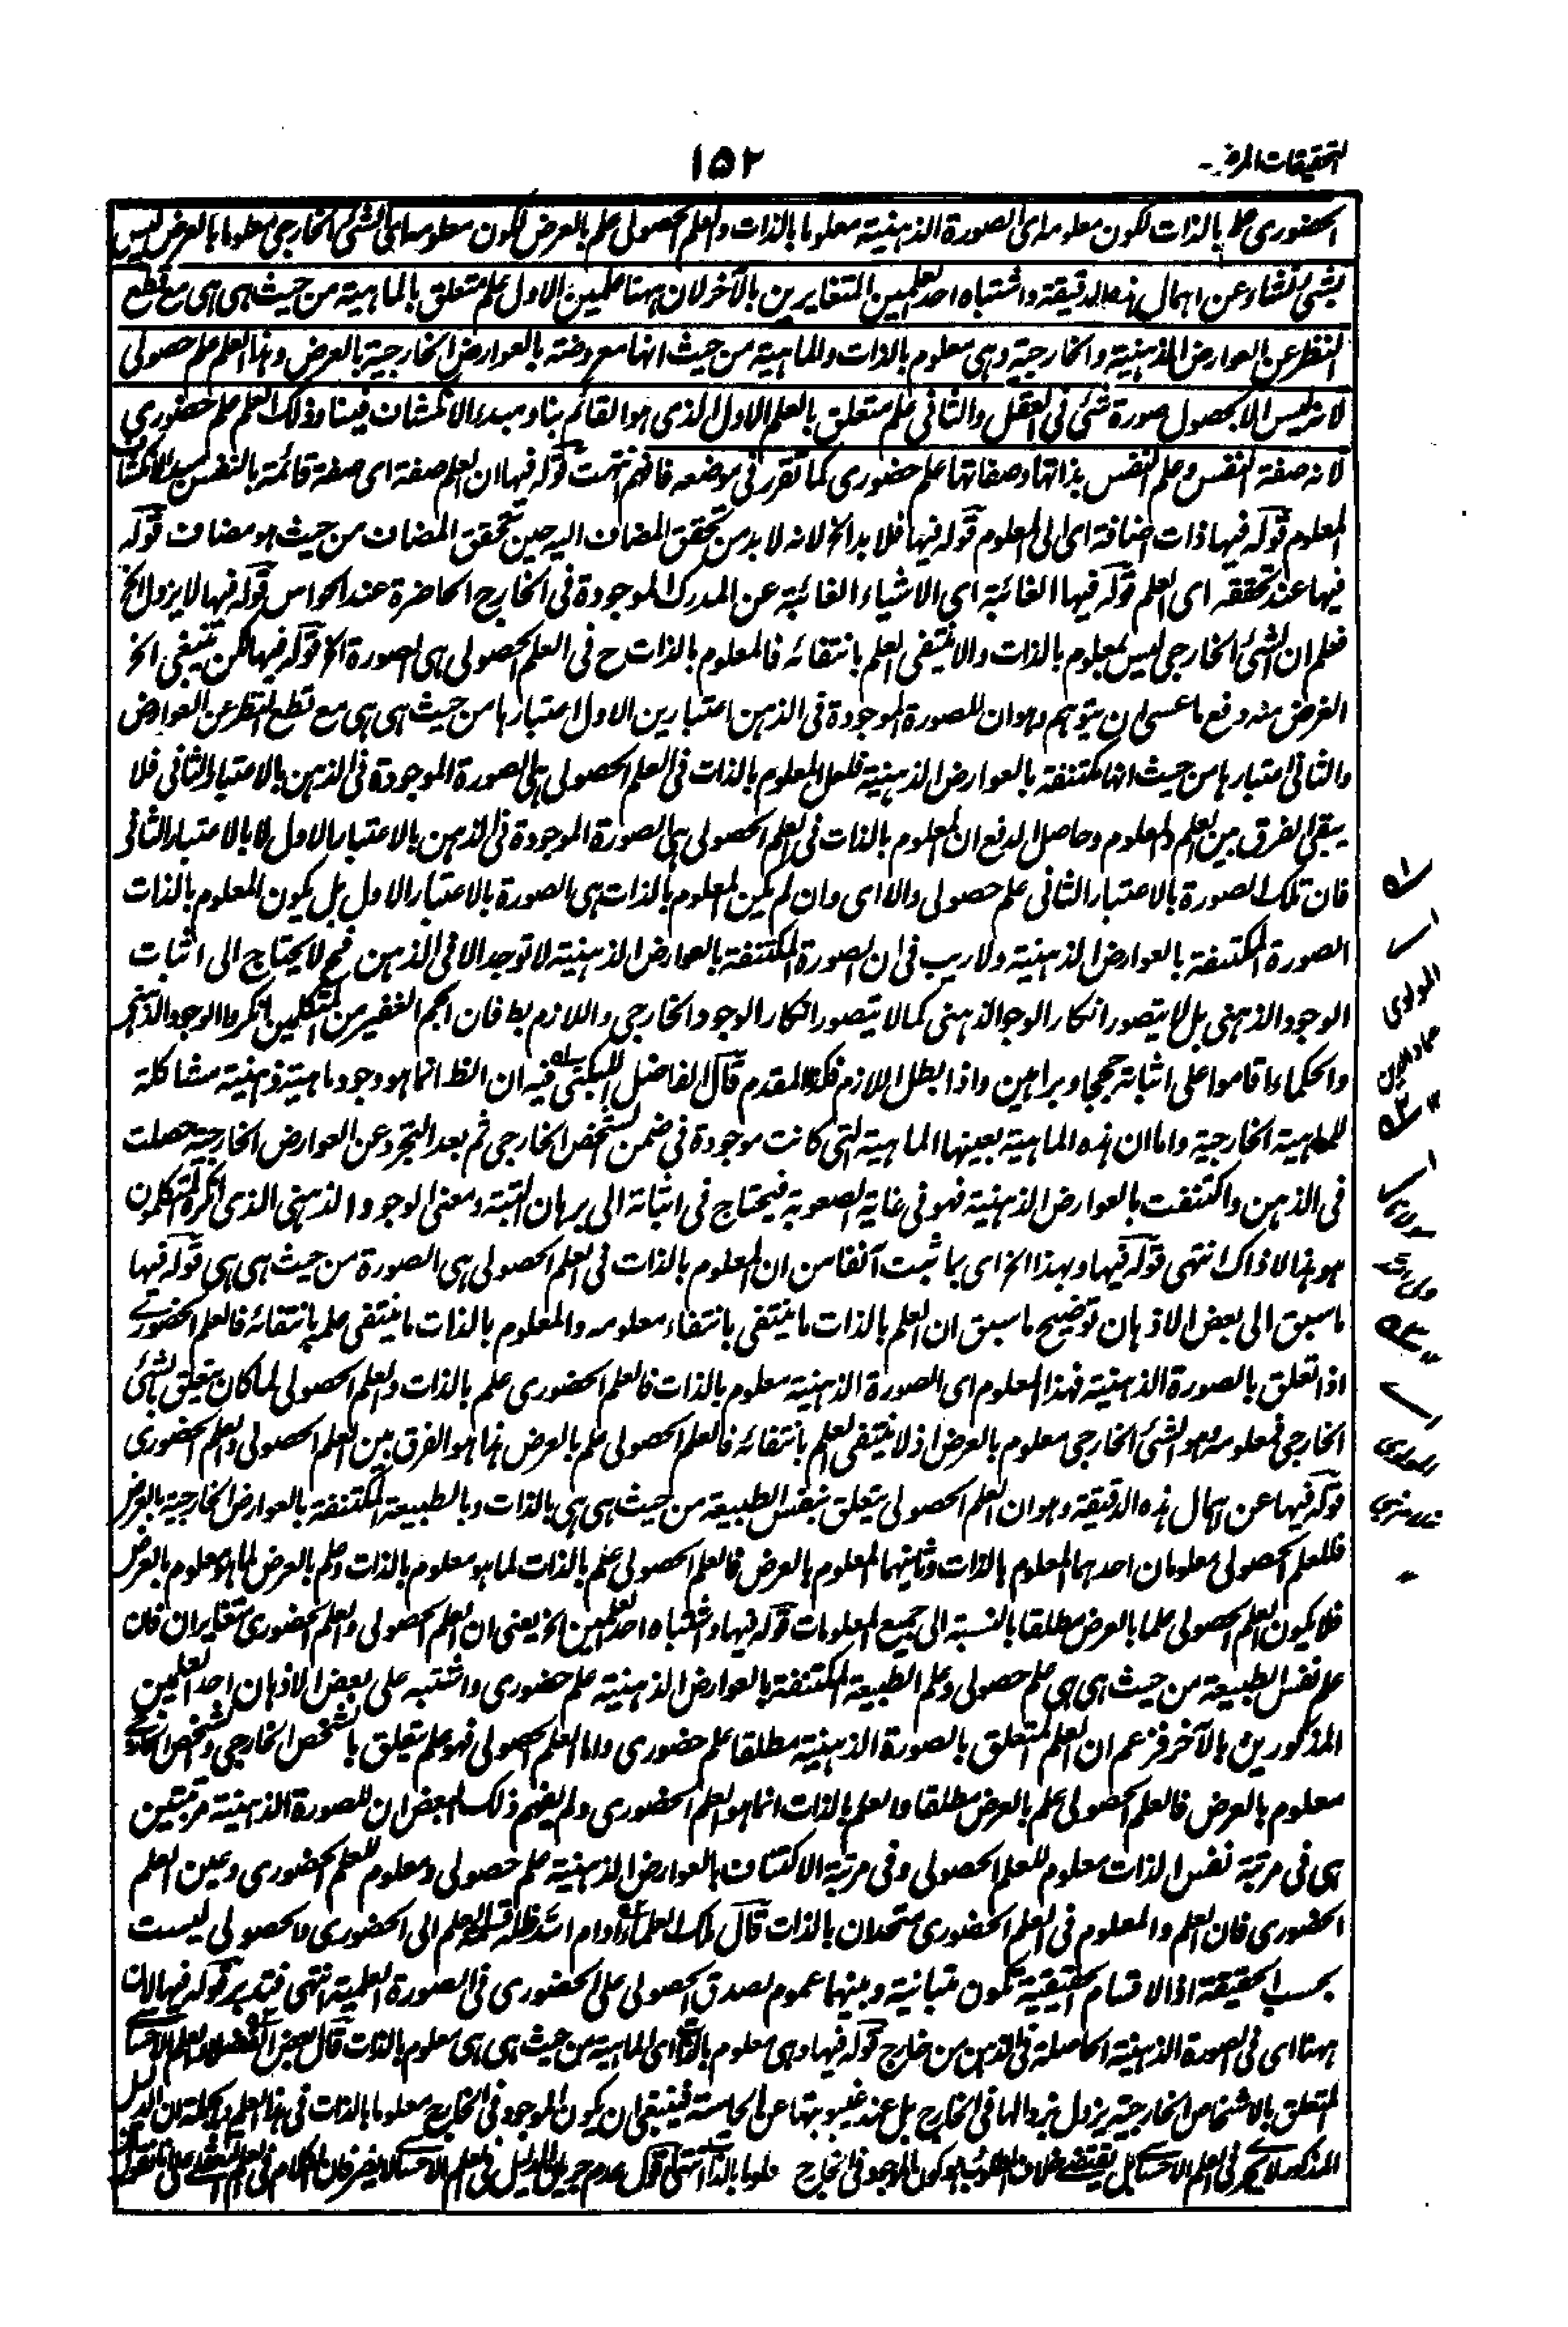 التحقيقات المرضـ
١٥٢
الحضوری علم بالذات لكون معلومه ای الصورة الذهنية معلوما بالذات والعلم الحصولی علم بالعرض لكون معلومه ای الشیٔ الخارجی معلوما بالعرض ليس
بشیٔ نشاء عن اهمال هذه الدقيقة واشتباه احد العلمين المتغايرين بالآخر لان ههنا علمين الاول علم متعلق بالماهية من حيث هی هی مع قطع
النظر عن العوارض الذهنية والخارجية وهی معلوم بالذات والماهية من حيث انها معروضة بالعوارض الخارجية بالعرض وهذا العلم علم حصولی
لانه ليس الا بحصول صورة شیٔ فی العقل والثانی علم متعلق بالعلم الاول الذی هو القائم بنا ومبدء الانكشاف فينا وذلك العلم علم حضوری
لانه صفة النفس وعلم النفس بذاتها وصفاتها علم حضوری كما تقرر فی موضعه فافهم انتهت قوله فيها ان العلم صفة ای صفة قائمة بالنفس مبدء لانكشاف
المعلوم قوله فيها ذات اضافة ای الی المعلوم قوله فيها فلا بد الخ لانه لا بد من تحقق المضاف اليه حين تحقق المضاف من حيث هو مضاف قوله
فيها عند تحققه ای العلم قوله فيها الغائبة ای الاشياء الغائبة عن المدرك الموجودة فی الخارج الحاضرة عند الحواس قوله فيها لا يزول الخ
فعلم ان الشیٔ الخارجی ليس بمعلوم بالذات والا لانتفی العلم بانتفائه فالمعلوم بالذات ح فی العلم الحصولی هی الصورة الخ قوله فيها لكن ينبغی الخ
الغرض منه دفع ما عسی ان يتوهم وهو ان للصورة الموجودة فی الذهن اعتبارين الاول اعتبارها من حيث هی هی مع قطع النظر عن العوارض
والثانی اعتبارها من حيث انها مكتنفة بالعوارض الذهنية فلعل المعلوم بالذات فی العلم الحصولی هی الصورة الموجودة فی الذهن بالاعتبار الثانی فلا
يبقی الفرق بين العلم والمعلوم وحاصل الدفع ان المعلوم بالذات فی العلم الحصولی هی الصورة الموجودة فی الذهن بالاعتبار الاول لا بالاعتبار الثانی
فان تلك الصورة بالاعتبار الثانی علم حصولی والا ای وان لم يكن المعلوم بالذات هی الصورة بالاعتبار الاول بل يكون المعلوم بالذات
الصورة المكتنفة بالعوارض الذهنية ولا ريب فی ان الصورة المكتنفة بالعوارض الذهنية لا توجد الا فی الذهن فح لا يحتاج الی اثبات
الوجود الذهنی بل لا يتصور انكار الوجود الذهنی كما لا يتصور انكار الوجود الخارجی واللازم بط فان الجم الغفير من المتكلمين انكروا الوجود الذهنی
والحكماء اقاموا علی اثباته حججا وبراهين واذا بطل اللازم فكذا المقدم قال الفاضل اللبكنی فيه ان الظ انما هو وجود ماهية ذهنية مشاكلة
للماهية الخارجية واما ان هذه الماهية بعينها الماهية التی كانت موجودة فی ضمن الشخص الخارجی ثم بعد التجرد عن العوارض الخارجية حصلت
فی الذهن واكتنفت بالعوارض الذهنية فهو فی غاية الصعوبة فيحتاج فی اثباته الی برهان البتة ومعنی الوجود الذهنی الذی انكره المتكلمون
هو هذا لا ذاك انتهی قوله فيها وبهذا الخ ای بما ثبت آنفا من ان المعلوم بالذات فی العلم الحصولی هی الصورة من حيث هی هی قوله فيها
ما سبق الی بعض الاذهان توضيح ما سبق ان العلم بالذات ما ينتفی بانتفاء معلومه والمعلوم بالذات ما ينتفی علمه بانتفائه فالعلم الحضوری
اذا تعلق بالصورة الذهنية فهذا المعلوم ای الصورة الذهنية معلوم بالذات فالعلم الحضوری علم بالذات والعلم الحصولی لما كان يتعلق بالشیٔ
الخارجی فمعلومه وهو الشیٔ الخارجی معلوم بالعرض اذ لا ينتفی العلم بانتفائه فالعلم الحصولی علم بالعرض هذا هو الفرق بين العلم الحصولی والعلم الحضوری
قوله فيها عن اهمال هذه الدقيقة وهو ان العلم الحصولی يتعلق بنفس الطبيعة من حيث هی هی بالذات وبالطبيعة المكتنفة بالعوارض الخارجية بالعرض
فللعلم الحصولی معلومان احدهما المعلوم بالذات وثانيهما المعلوم بالعرض فالعلم الحصولی علم بالذات لما هو معلوم بالذات وعلم بالعرض لما هو معلوم بالعرض
فلا يكون العلم الحصولی علما بالعرض مطلقا بالنسبة الی جميع المعلومات قوله فيها واشتباه احد العلمين الخ يعنی ان العلم الحصولی والعلم الحضوری متغايران فان
علم نفس الطبيعة من حيث هی هی علم حصولی وعلم الطبيعة المكتنفة بالعوارض الذهنية علم حضوری واشتبه علی بعض الاذهان احد العلمين
المذكورين بالآخر فزعم ان العلم المتعلق بالصورة الذهنية مطلقا علم حضوری واما العلم الحصولی فهو علم يتعلق بالشخص الخارجی والشخص الخارجی
معلوم بالعرض فالعلم الحصولی علم بالعرض مطلقا والعلم بالذات انما هو العلم الحضوری ولم يفهم ذلك البعض ان للصورة الذهنية مرتبتين
هی فی مرتبة نفس الذات معلوم للعلم الحصولی وفی مرتبة الاكتناف بالعوارض الذهنية علم حصولی ومعلوم للعلم الحضوری وعين العلم
الحضوری فان العلم والمعلوم فی العلم الحضوری متحدان بالذات قال ملك العلماء ادام الله ظله قسمة العلم الی الحضوری والحصولی ليست
بحسب الحقيقة اذ الاقسام الحقيقية تكون متباينة وبينهما عموم لصدق الحصولی علی الحضوری فی الصورة العلمية انتهی فتدبر قوله فيها لان
ههنا ای فی الصورة الذهنية الحاصلة فی الذهن من خارج قوله فيها وهی معلوم بالذات ای الماهية من حيث هی هی معلوم بالذات قال بعض الفضلاء العلم الاحساسی
المتعلق بالاشخاص الخارجية يزول بزوالها فی الخارج بل عند غيبوبتها عن الحاسة فينبغی ان يكون الموجود فی الخارج معلوما بالذات فی هذا العلم وبالجملة ان الدليل
المذكور لا يجری فی العلم الاحساسی بل يقتضی خلاف المطلوب وهو كون الموجود فی الخارج معلوما بالذات انتهی اقول عدم جريان الدليل فی العلم الاحساسی لا يضر فان الكلام فی العلم
المولوی